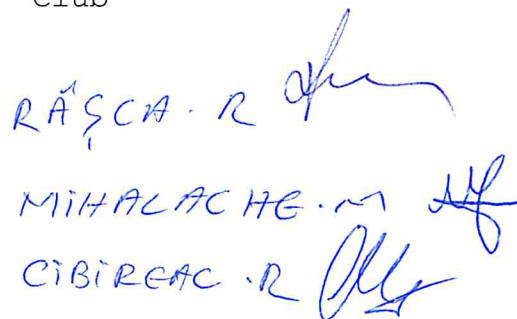 Club
RĂȘCA. R
MIHALACHE. M
CIBIREAC. R